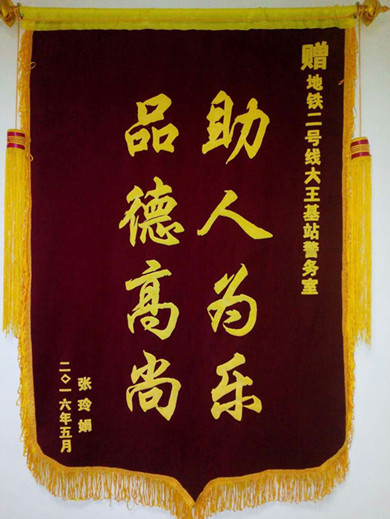 赠 地铁二号线大王基站警务室
助人为乐
品德高尚
张玲娟
二〇一六年五月